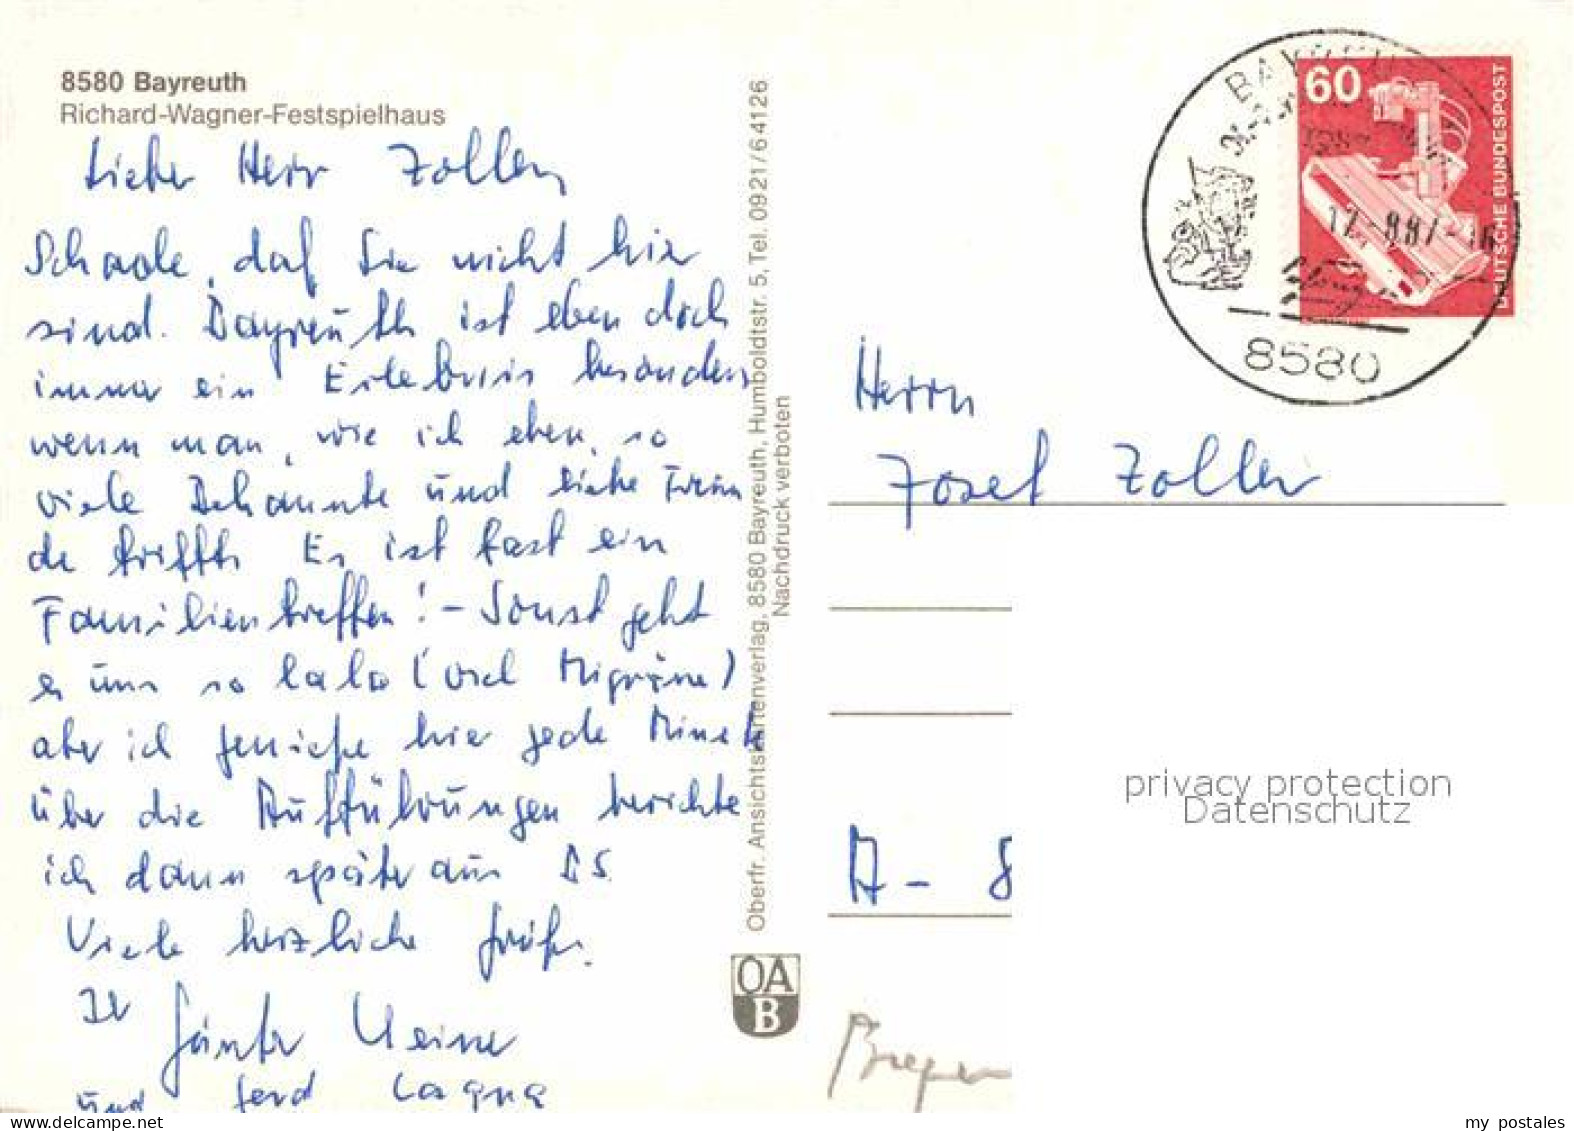 8580 Bayreuth
Richard-Wagner-Festspielhaus
Lieber Herr Zoller,
Schade, daß Sie nicht hier
sind. Bayreuth ist eben doch
immer ein Erlebnis besonders
wenn man, wie ich eben, so
viele Bekannte und liebe Freun
de trifft. Es ist fast ein
Familientreffen! - Sonst geht
es uns so lala (viel Migräne)
aber ich genieße hier jede Minute
über die Aufführungen berichte
ich dann später aus
Viele herzliche Grüße.
Ihr
Günter
und Gerd
Oberfr. Ansichtskartenverlag, 8580 Bayreuth, Humboldtstr. 5, Tel. 0921/64126
Nachdruck verboten
OAB
60
DEUTSCHE BUNDESPOST
8580
Herrn
Josef Zoller
A - 
privacy protection
Datenschutz
my postales